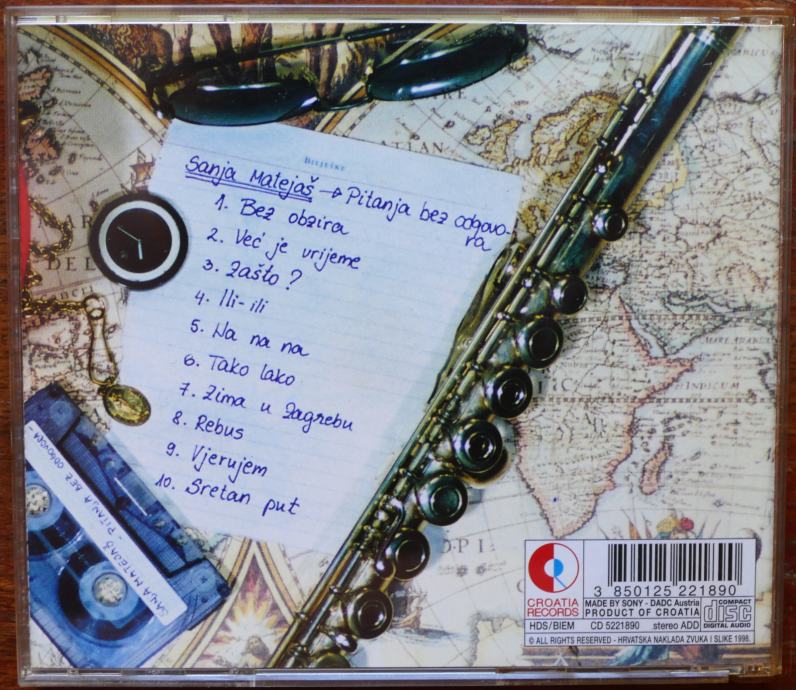 BILJEŠKE
Sanja Matejaš → Pitanja bez odgovo-
ra
1. Bez obzira
2. Već je vrijeme
3. Zašto?
4. Ili-ili
5. Na na na
6. Tako lako
7. Zima u Zagrebu
8. Rebus
9. Vjerujem
10. Sretan put
SANJA MATEJAŠ - PITANJA BEZ ODGOVORA -
DEL
INDICUM
CROATIA
RECORDS
3 850125 221890
MADE BY SONY - DADC Austria
PRODUCT OF CROATIA
COMPACT
disc
DIGITAL AUDIO
HDS/BIEM CD 5221890 stereo ADD
© ALL RIGHTS RESERVED - HRVATSKA NAKLADA ZVUKA I SLIKE 1998.